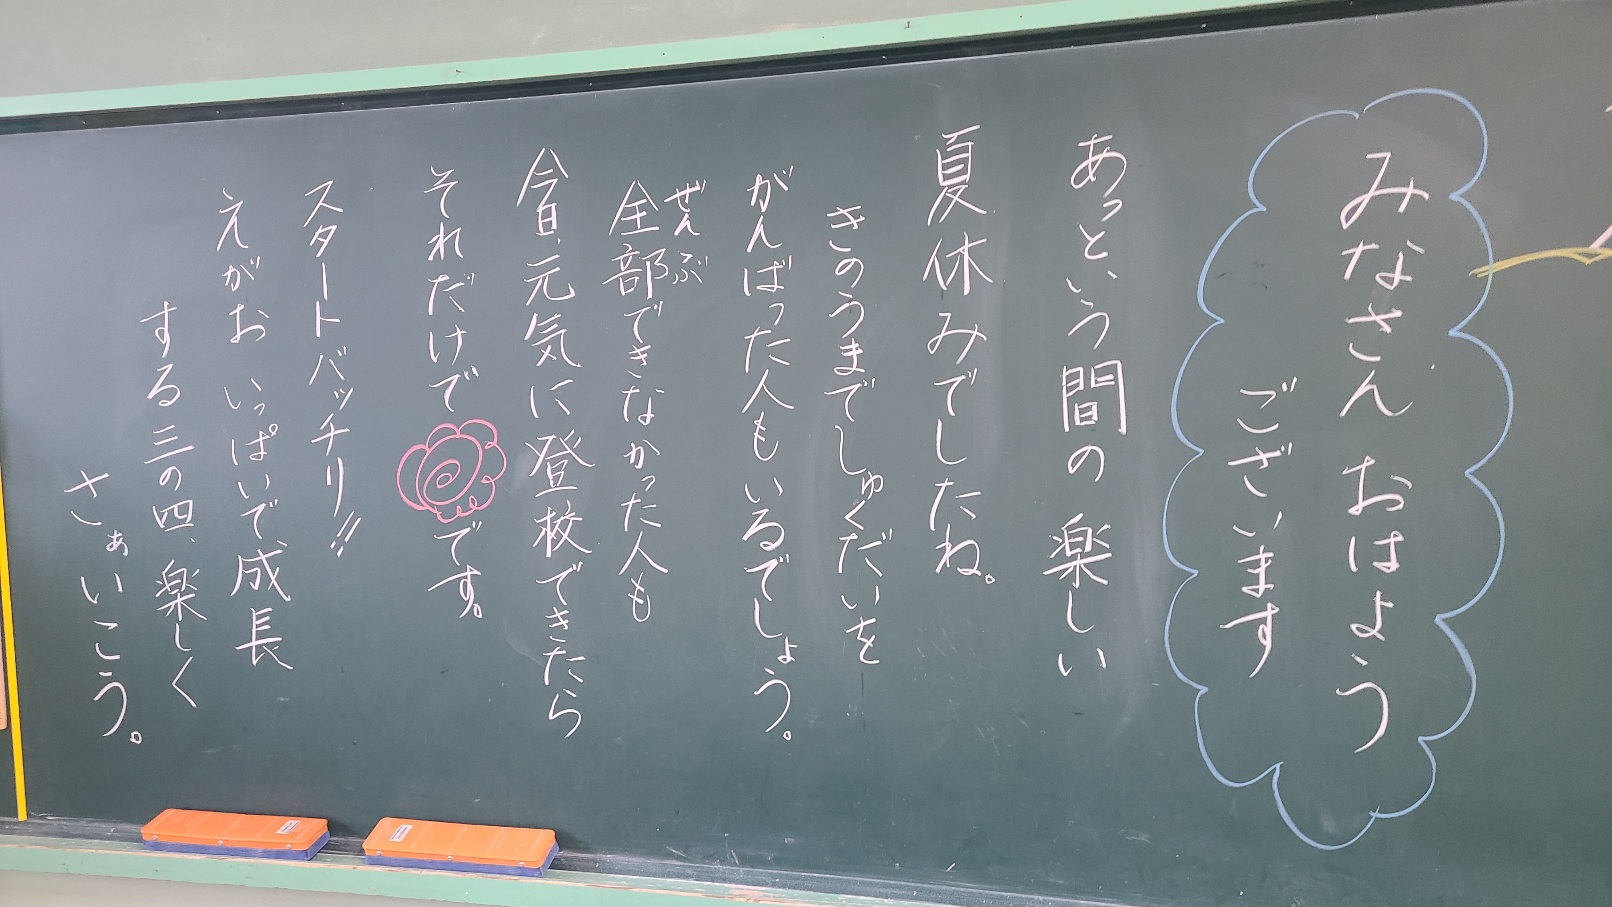 みなさん おはよう
ございます
あっという間の楽しい
夏休みでしたね。
きのうまでしゅくだいを
がんばった人もいるでしょう。
ぜんぶ
全部できなかった人も
今日、元気に登校できたら
それだけで です。
スタートバッチリ!!
えがお いっぱいで、成長
する三の四、楽しく
さぁいこう。